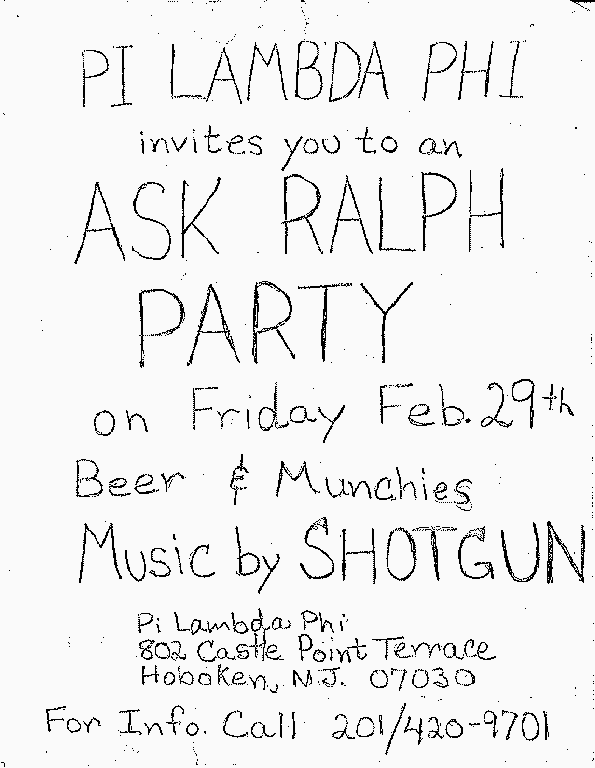 PI LAMBDA PHI
invites you to an
ASK RALPH
PARTY
on Friday Feb. 29th
Beer & Munchies
Music by SHOTGUN
Pi Lambda Phi
802 Castle Point Terrace
Hoboken, N.J. 07030
For Info. Call 201/420-9701